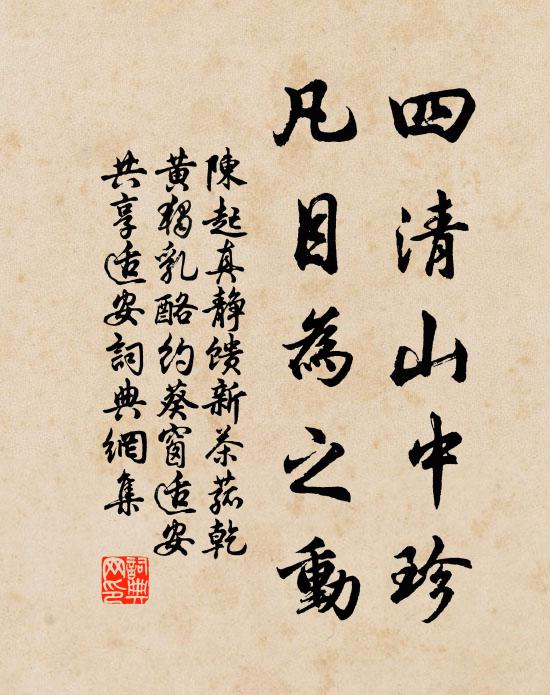 四清山中珍
凡目為之動
陳起真靜馈新茶菰乾
黄獨乳酪约葵窗适安
共享适安詞典網集
詞典
网印